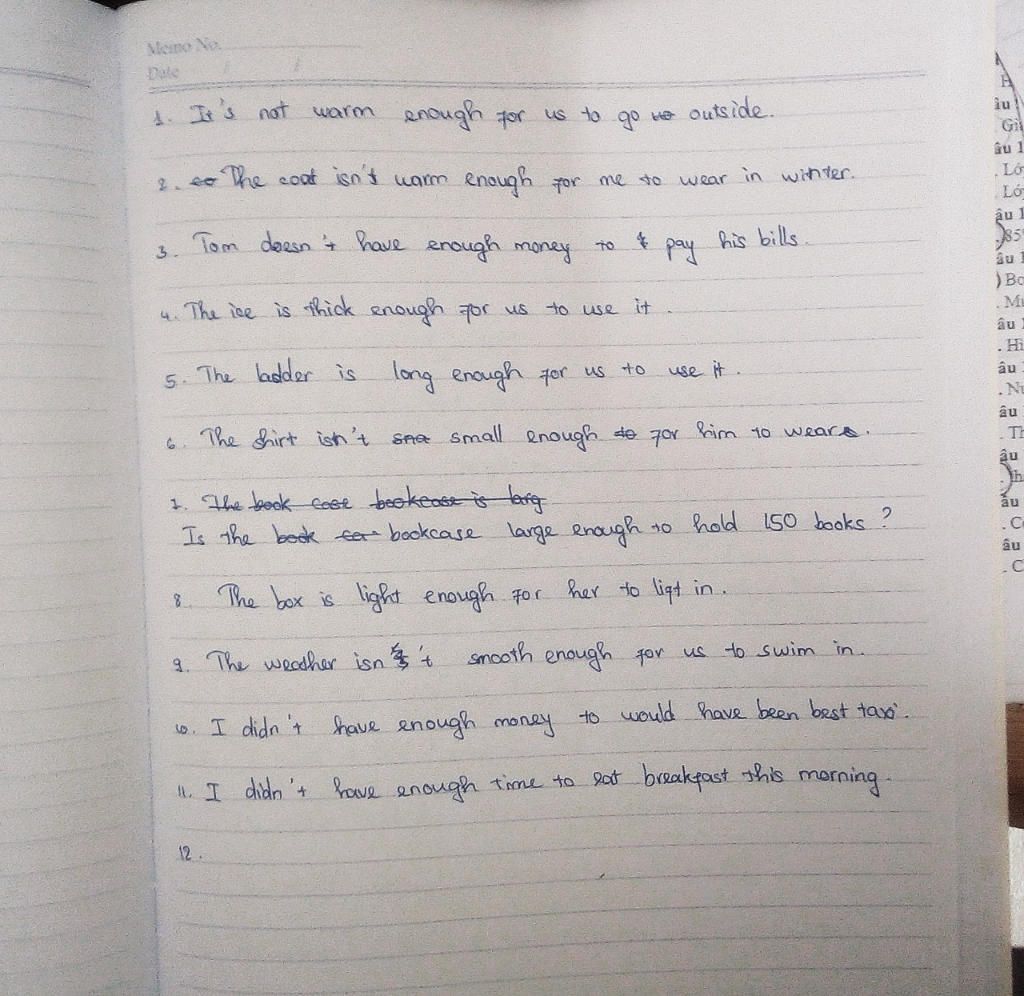 Memo No.
Date / /
1. It's not warm enough for us to go outside.
2. The coat isn't warm enough for me to wear in winter.
3. Tom doesn't have enough money to pay his bills.
4. The ice is thick enough for us to use it.
5. The ladder is long enough for us to use it.
6. The shirt isn't small enough for him to wear.
7. The book case bookcase is larg
Is the book bookcase large enough to hold 150 books?
8. The box is light enough for her to ligt in.
9. The weather isn't smooth enough for us to swim in.
10. I didn't have enough money to would have been best taxi.
11. I didn't have enough time to eat breakfast this morning.
12.
âu
Gi
âu 1
. Lớ
. Lớ
âu 1
85
âu 1
) Bo
. Mu
âu 1
. Hi
âu
. Nu
âu
. Th
âu
h
âu
. C
âu
. C